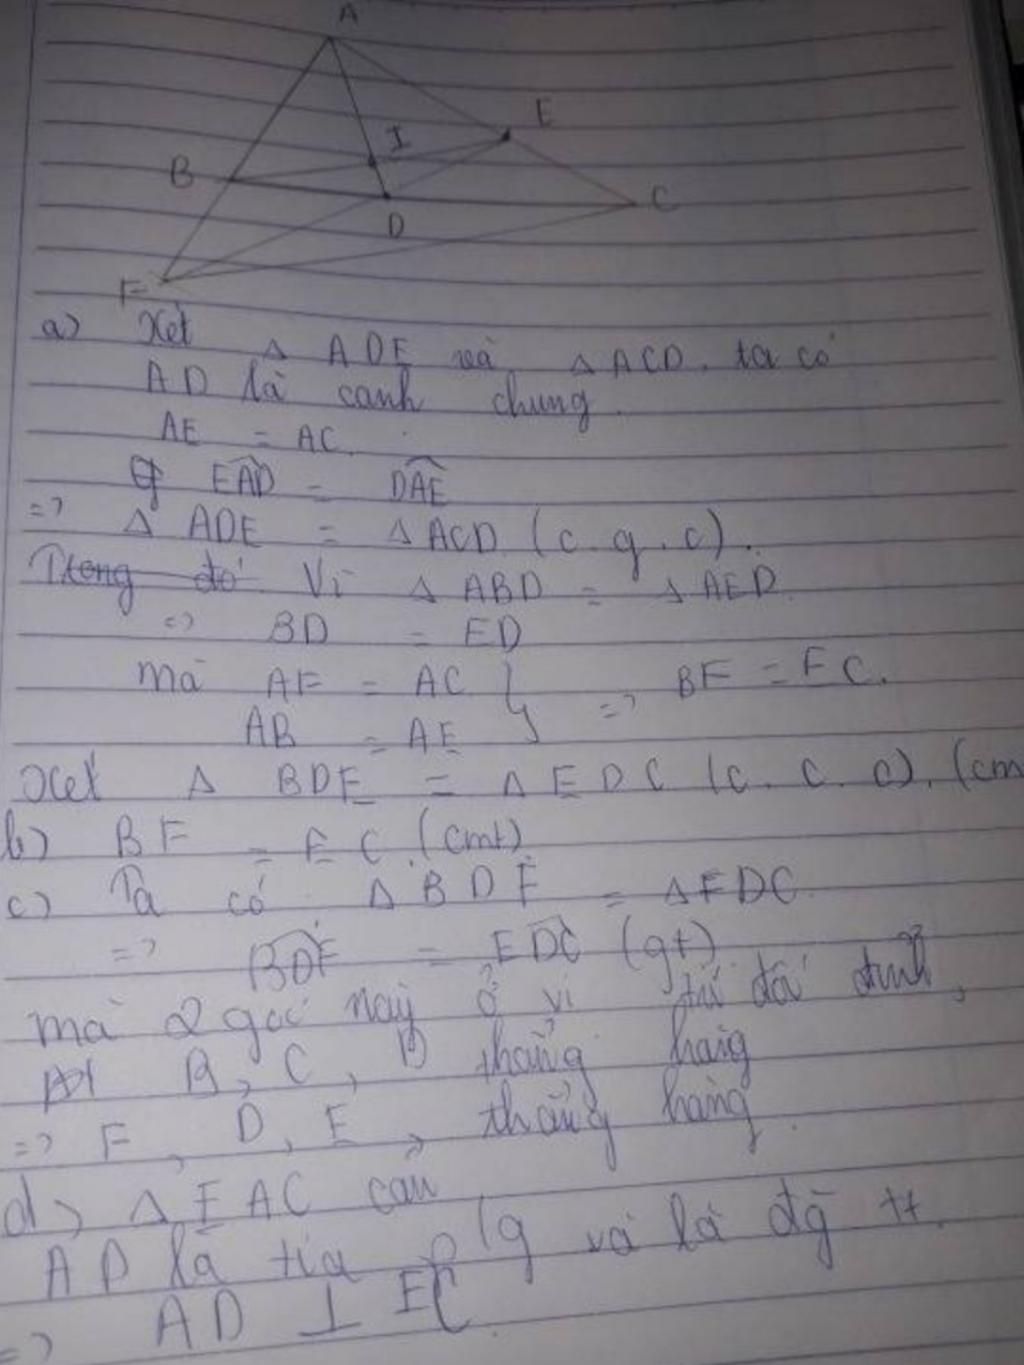 A
E
I
B
C
D
F
a) Xét Δ ADF và Δ ACD. ta có
AD là cạnh chung.
AF = AC.
FAD = DAE
=> Δ ADF = Δ ACD (c.g.c).
Trong đó Vì Δ ABD = Δ AED.
=> BD = ED
mà AF = AC } => BF = EC.
AB = AE
Xét Δ BDF = Δ EDC (c.c.c). (cm
b) BF = EC. (cmt)
c) Ta có Δ BDF = Δ EDC.
=> BDF = EDC (gt)
mà 2 góc này ở vị trí đối đỉnh,
B, C, D thẳng hàng
=> F, D, E, thẳng hàng.
d) Δ FAC cân
AD là tia p/g và là đg tt.
=> AD ⊥ FC.